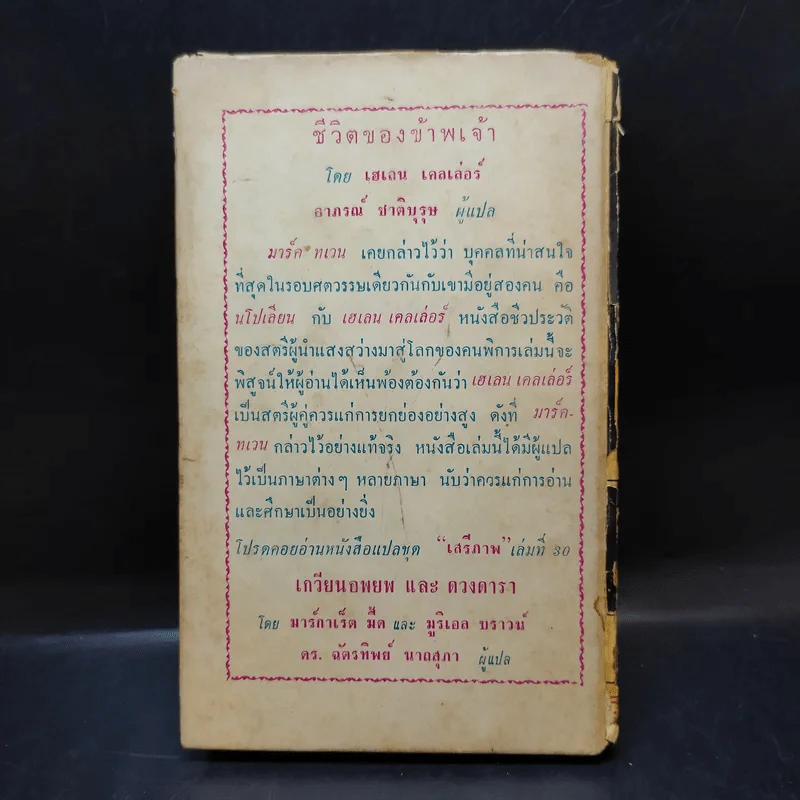 ชีวิตของข้าพเจ้า
โดย เฮเลน เคลเล่อร์
อาภรณ์ ชาติบุรุษ ผู้แปล
มาร์ค ทเวน เคยกล่าวไว้ว่า บุคคลที่น่าสนใจ
ที่สุดในรอบศตวรรษเดียวกันกับเขามีอยู่สองคน คือ
นโปเลียน กับ เฮเลน เคลเล่อร์ หนังสือชีวประวัติ
ของสตรีผู้นำแสงสว่างมาสู่โลกของคนพิการเล่มนี้จะ
พิสูจน์ให้ผู้อ่านได้เห็นพ้องต้องกันว่า เฮเลน เคลเล่อร์
เป็นสตรีผู้คู่ควรแก่การยกย่องอย่างสูง ดังที่ มาร์ค-
ทเวน กล่าวไว้อย่างแท้จริง หนังสือเล่มนี้ได้มีผู้แปล
ไว้เป็นภาษาต่าง ๆ หลายภาษา นับว่าควรแก่การอ่าน
และศึกษาเป็นอย่างยิ่ง
โปรดคอยอ่านหนังสือแปลชุด “เสรีภาพ” เล่มที่ 30
เกวียนอพยพ และ ดวงดารา
โดย มาร์กาเร็ต มี้ด และ มูริเอล บราวน์
ดร. ฉัตรทิพย์ นาถสุภา ผู้แปล